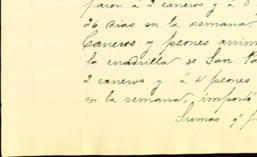 paron á 2 caneros y á 3
26 dias en la semana
Caneros y peones anim
la cuadrilla de San
2 caneros y á 4 peones
en la semana, importó
Sumas y